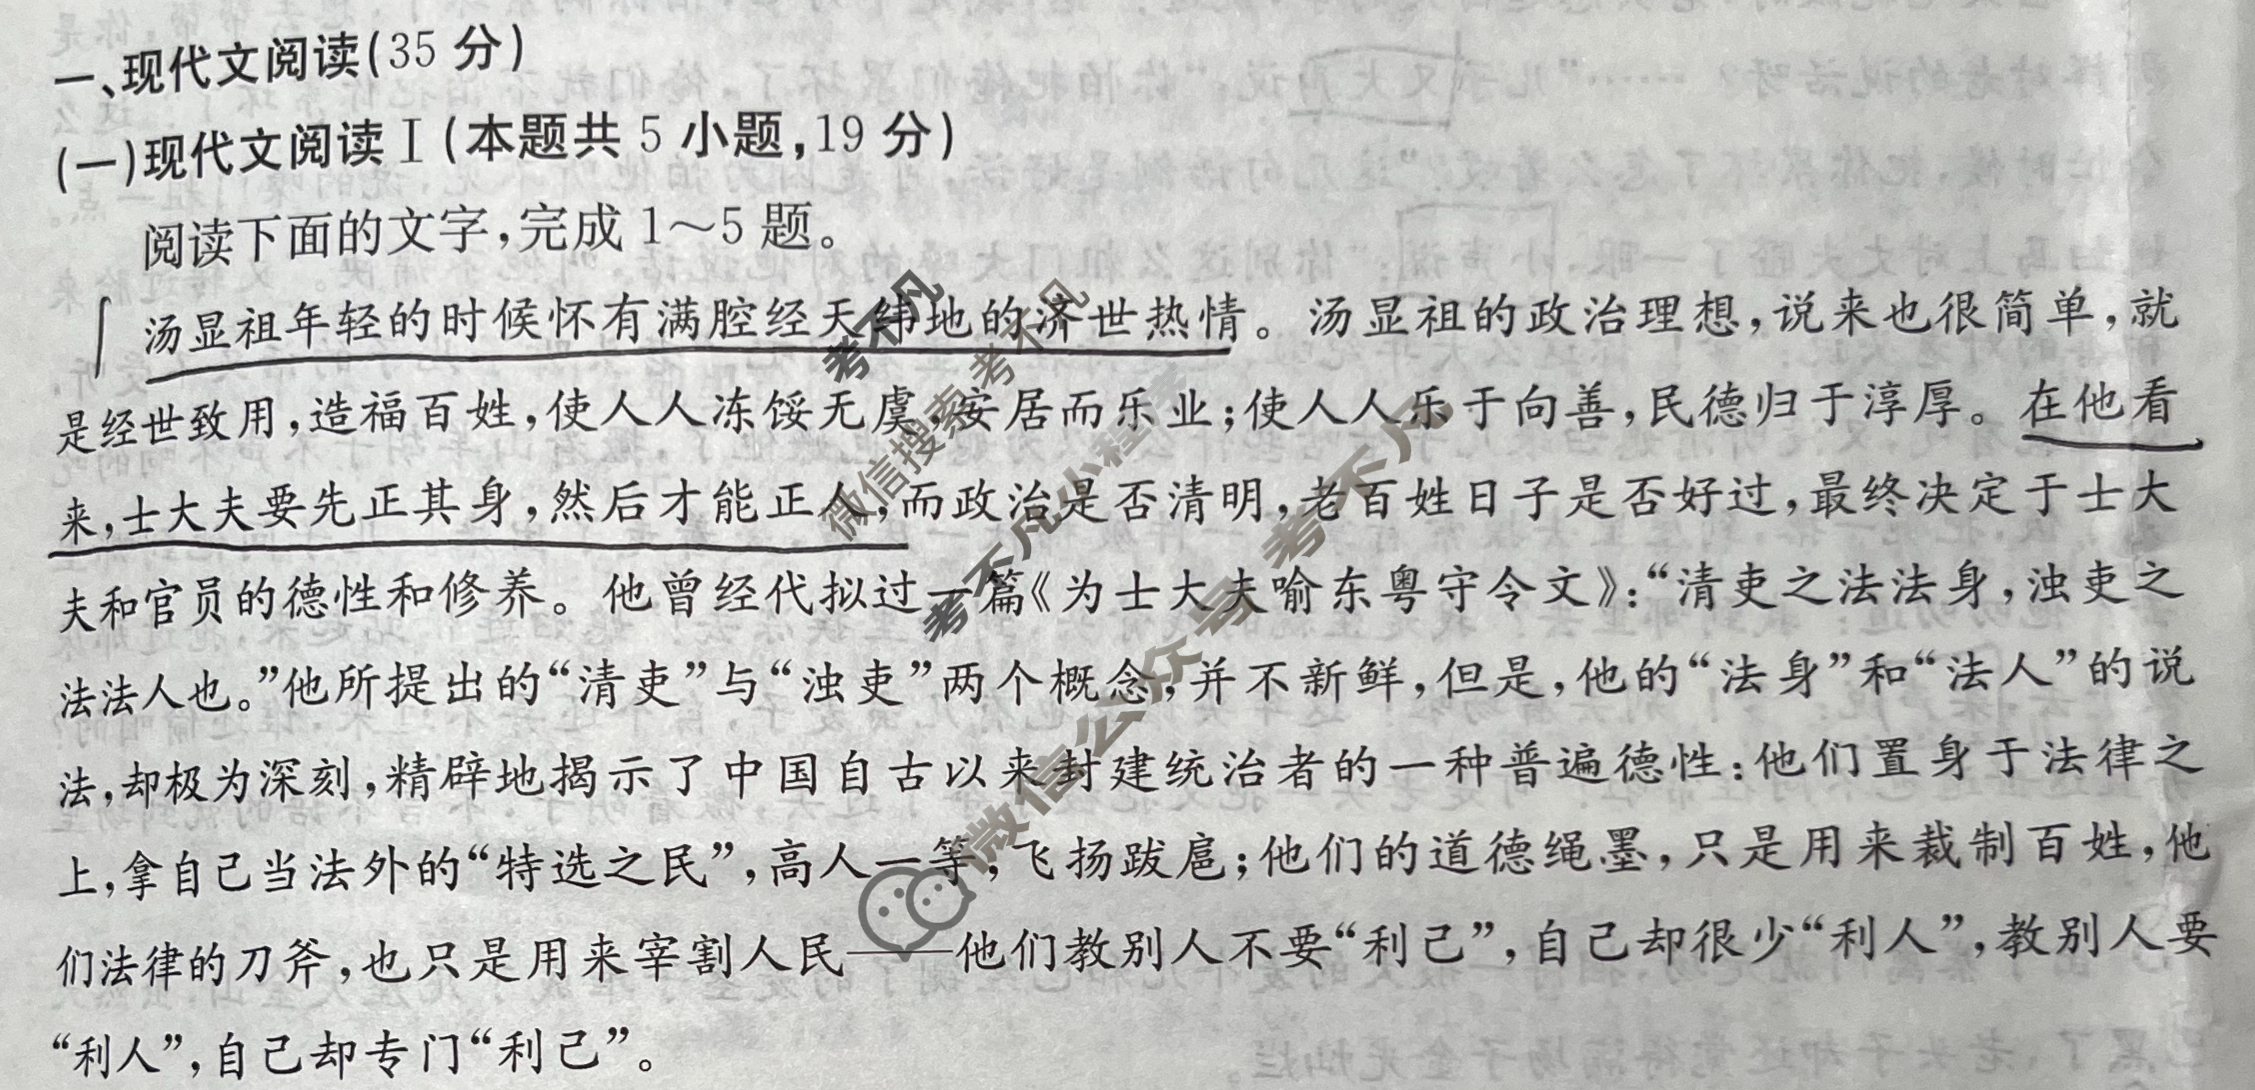 一、现代文阅读(35 分)
(一)现代文阅读Ⅰ(本题共 5 小题,19 分)
阅读下面的文字,完成 1～5 题。
汤显祖年轻的时候怀有满腔经天纬地的济世热情。汤显祖的政治理想,说来也很简单,就
是经世致用,造福百姓,使人人冻馁无虞,安居而乐业;使人人乐于向善,民德归于淳厚。在他看
来,士大夫要先正其身,然后才能正人,而政治是否清明,老百姓日子是否好过,最终决定于士大
夫和官员的德性和修养。他曾经代拟过一篇《为士大夫喻东粤守令文》:“清吏之法法身,浊吏之
法法人也。”他所提出的“清吏”与“浊吏”两个概念,并不新鲜,但是,他的“法身”和“法人”的说
法,却极为深刻,精辟地揭示了中国自古以来封建统治者的一种普遍德性:他们置身于法律之
上,拿自己当法外的“特选之民”,高人一等,飞扬跋扈;他们的道德绳墨,只是用来裁制百姓,他
们法律的刀斧,也只是用来宰割人民——他们教别人不要“利己”,自己却很少“利人”,教别人要
“利人”,自己却专门“利己”。
考不凡
微信搜索 考不凡
考不凡小程序
微信公众号 考不凡